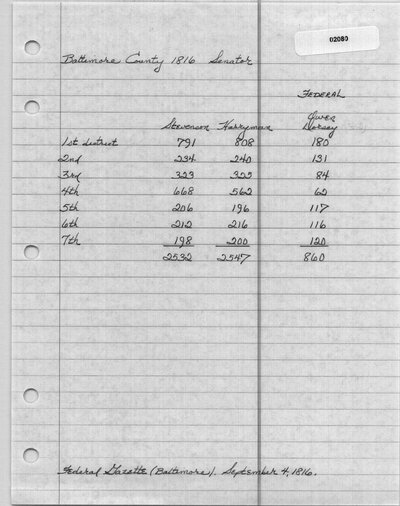 02080
Baltimore County 1816 Senator
FEDERAL
Stevenson Harryman Owen Dorsey
1st district 791 808 180
2nd 234 240 131
3rd 323 322 84
4th 668 562 62
5th 206 196 117
6th 212 216 116
7th 198 200 120
2532 2547 860
Federal Gazette (Baltimore). September 4, 1816.